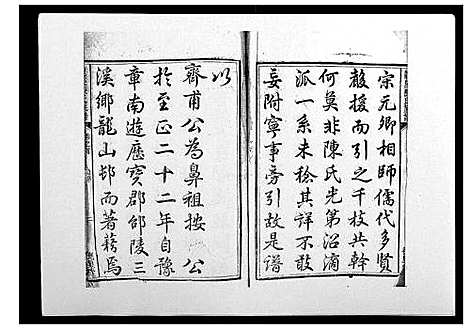 宗元卿相師儒代多賢
殽援而引之千枝共幹
何莫非陳氏光第沼滴
派一系未稔其詳不敢
妄附寧事旁引故是譜
以
齊甫公為鼻祖按　公
於至正二十二年自豫
章南遊歷寳郡邵陵三
溪鄉龍山邨而著藉焉